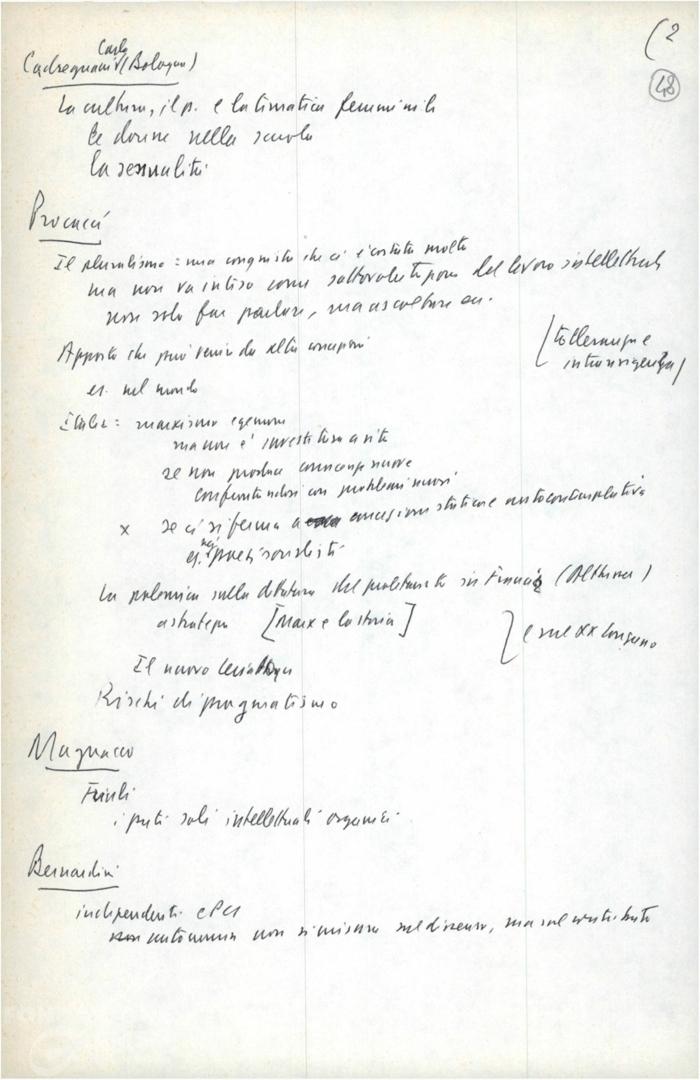 (2
48
Carla
(Bologna)
La cultura, il p. e la tematica femminile
le donne nella scuola
la sessualità
Procacci
Il pluralismo: una conquista che ci è costata molto
ma non va intiso come sottovalutazione del lavoro intellettuale
non solo far parlare, ma ascoltare ecc.
(tolleranza e
intransigenza)
Apporto che può venire da altre concezioni
es. nel mondo
Italia: marxismo egemone
ma non è investitura a vita
se non produce conoscenze nuove
confrontandosi con problemi nuovi
x se ci si ferma a concezioni statiche autocontemplativa
es. nei paesi socialisti
La polemica sulla dittatura del proletariato in Francia (Althusser)
astratta [Marx e la storia]
e sul XX Congresso
Il nuovo Leviathan
Rischi di pragmatismo
Magnacco
Friuli
i preti soli intellettuali organici
Bernardini
indipendenti e PCI
autonomia non si misura sul dissenso, ma sul contributo